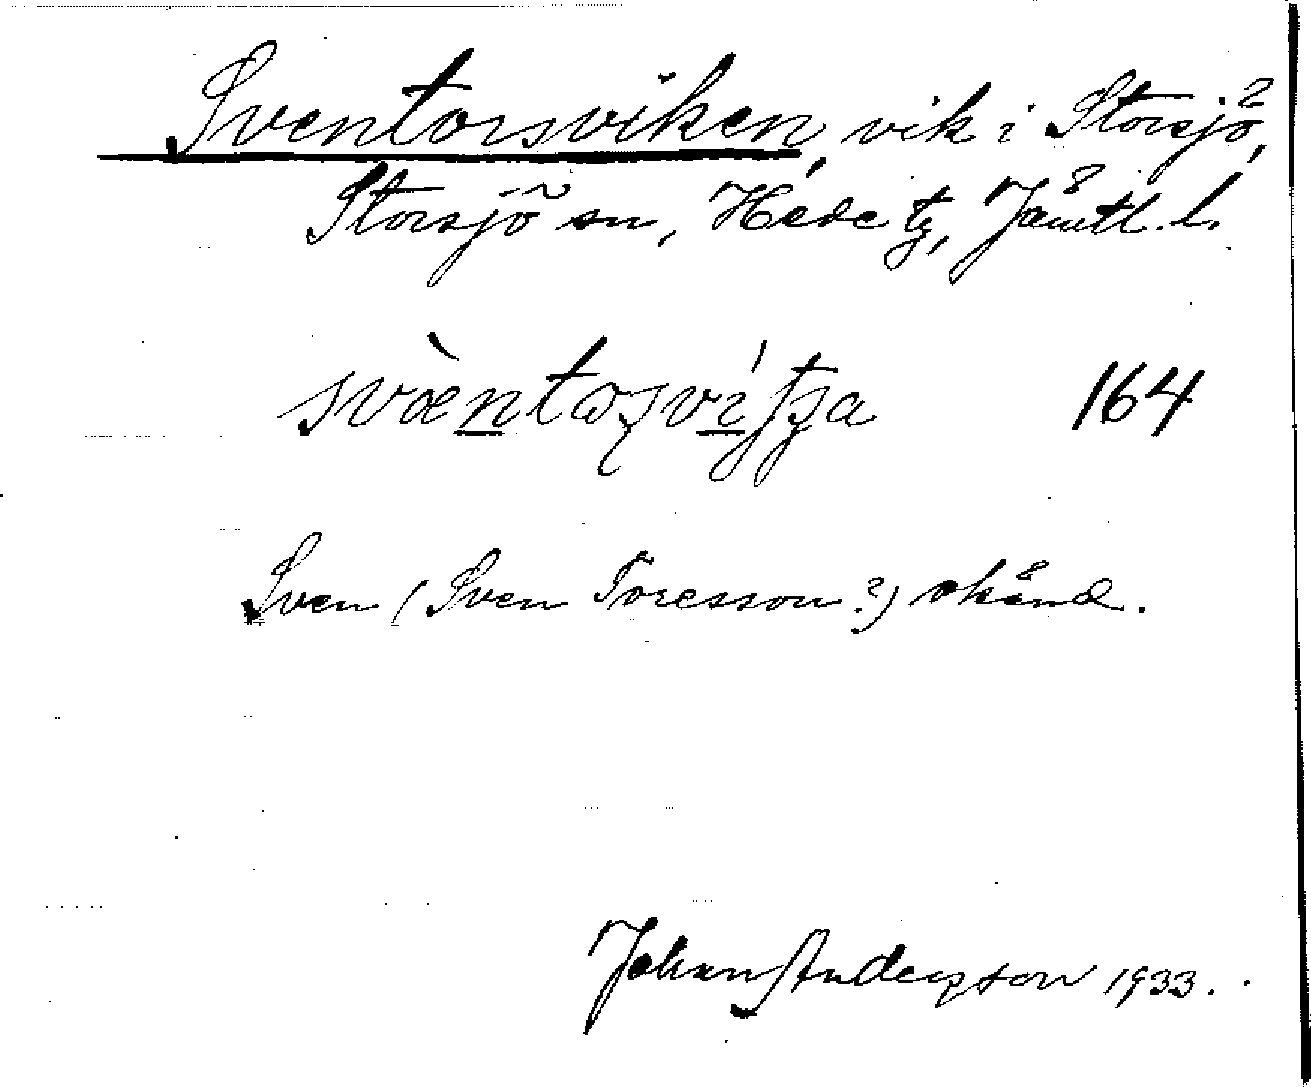 Sventorsviken, vik i Storsjö,
Storsjö sn, Hede tg, Jämtl. l.
svæ̀ntoʂvíʃʒa 164
Sven (Sven Toresson?) okänd.
Johan Anderson 1933.